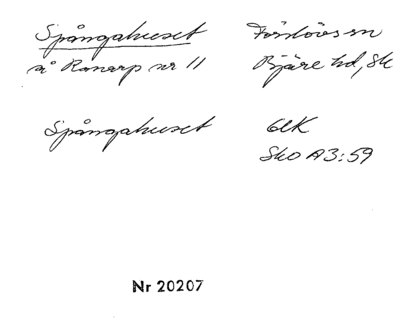 Spångahuset
å Ranarp nr 11
Förslövs sn
Bjäre hd, Sk
Spångahuset
GEK
Sko A3:59
Nr 20207